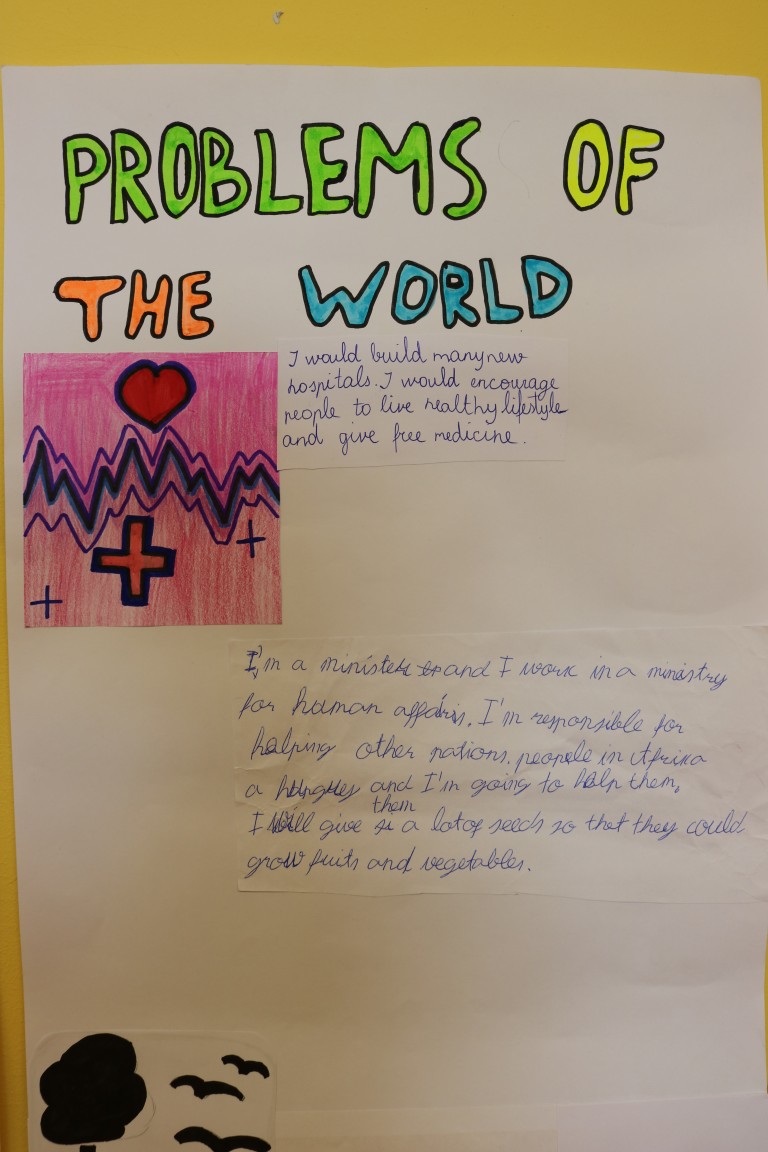 PROBLEMS OF
THE WORLD
I would build many new
hospitals. I would encourage
people to live healthy lifestyle
and give free medicine.
I'm a minister and I work in a ministry
for human affairs. I'm responsible for
helping other nations. people in Africa
a and I'm going to help them,
them
I will give a lot of seeds so that they could
grow fruits and vegetables.